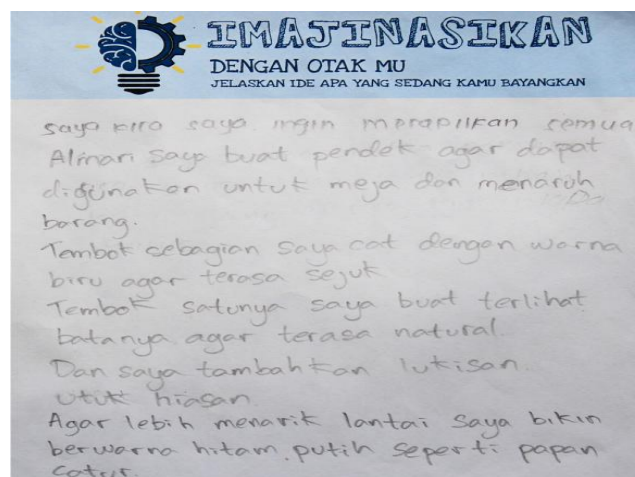 IMAJINASIKAN
DENGAN OTAK MU
JELASKAN IDE APA YANG SEDANG KAMU BAYANGKAN
saya kira saya ingin merapiikan semua
Almari saya buat pendek agar dapat
digunakan untuk meja dan menaruh
barang.
Tembok sebagian saya cat dengan warna
biru agar terasa sejuk
Tembok satunya saya buat terlihat
batanya agar terasa natural.
Dan saya tambahkan lukisan
utuk hiasan.
Agar lebih menarik lantai saya bikin
berwarna hitam putih seperti papan
catur.